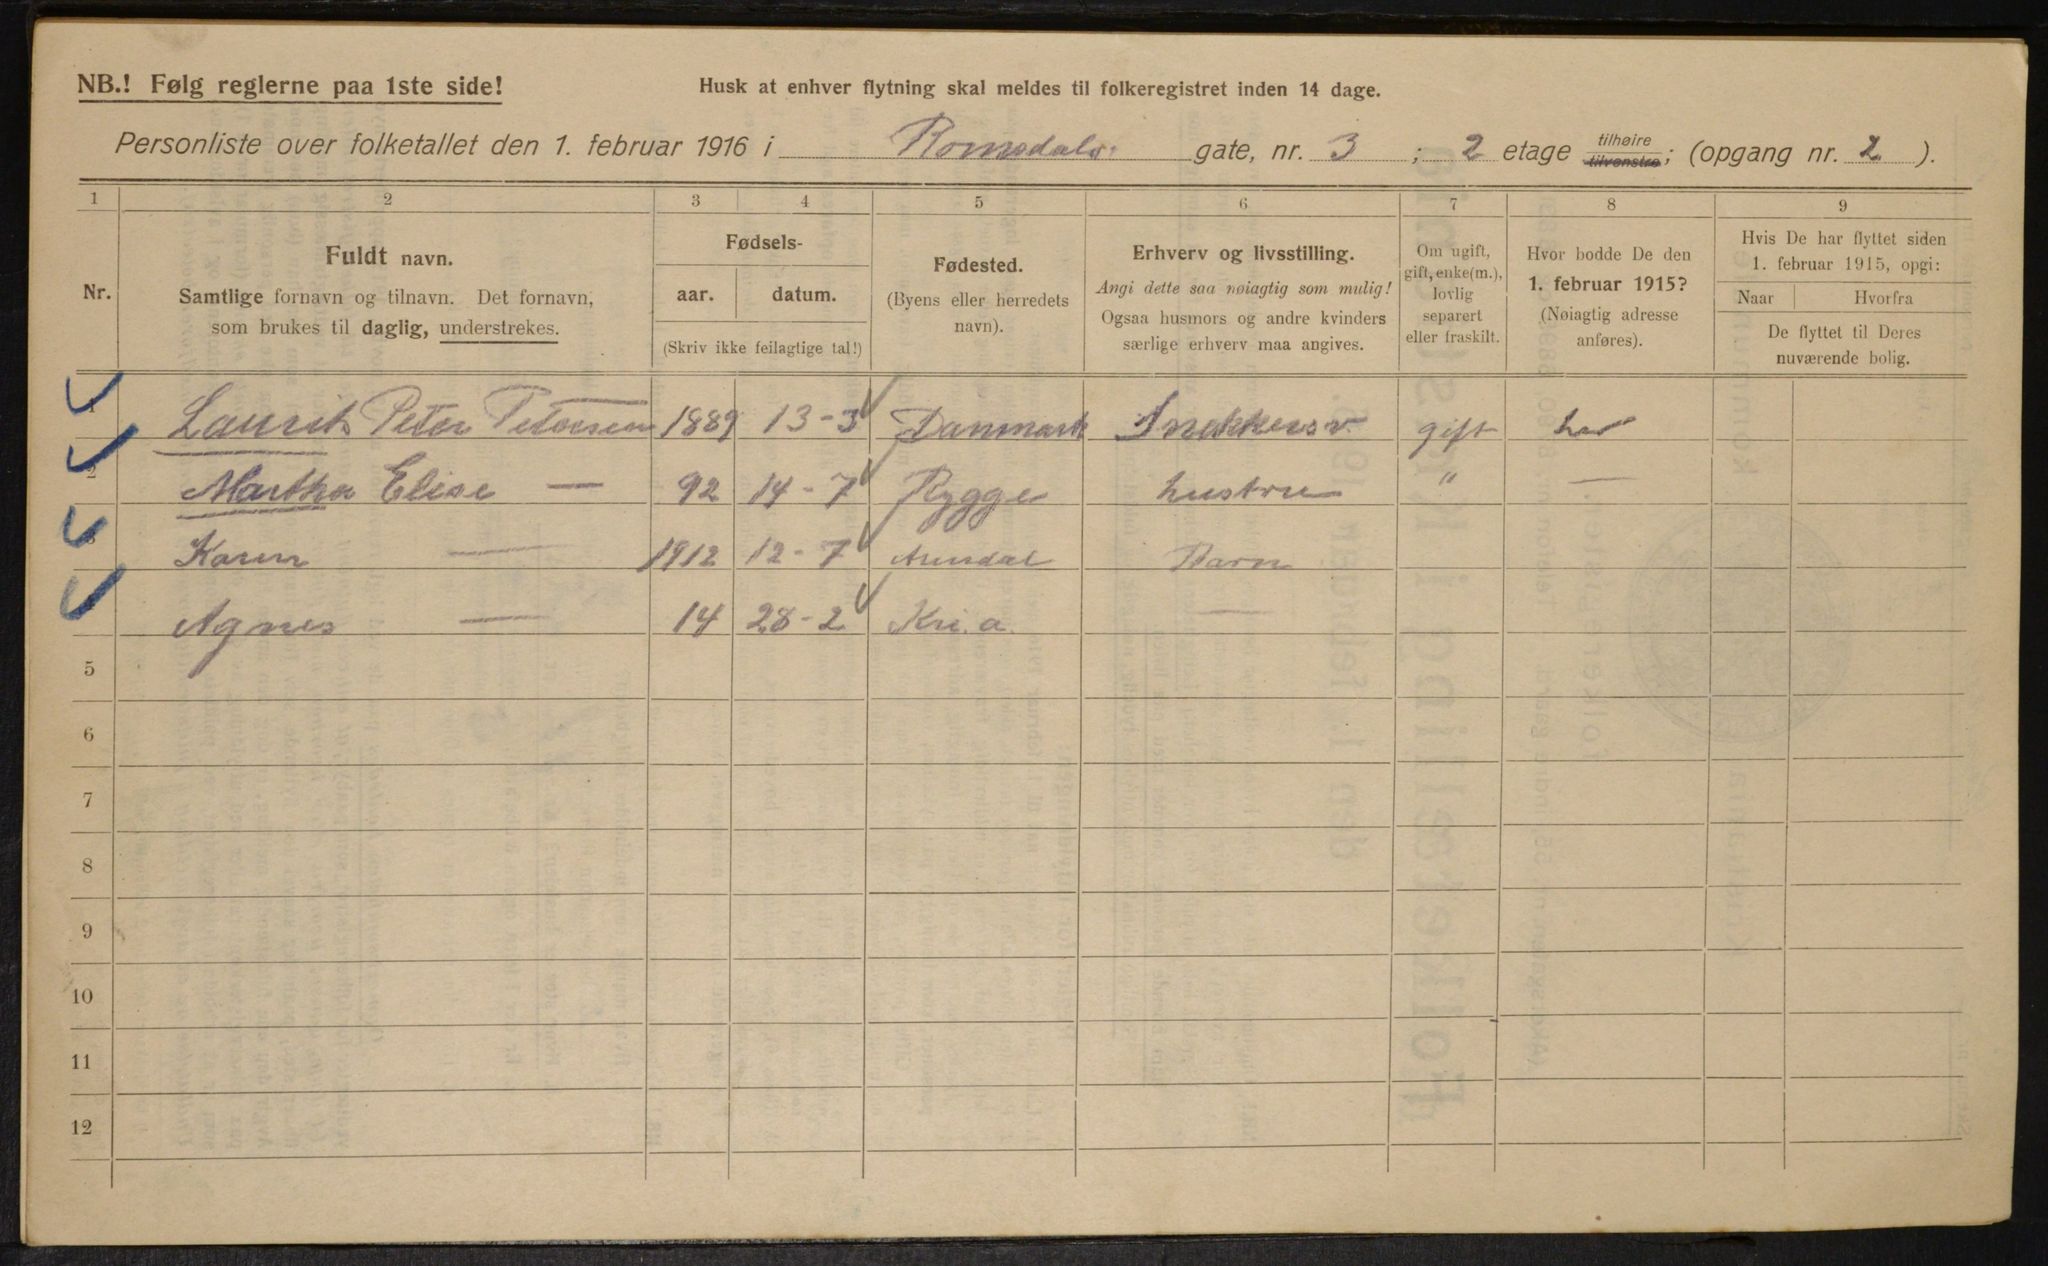 NB.! Følg reglerne paa 1ste side!
Husk at enhver flytning skal meldes til folkeregistret inden 14 dage.
Personliste over folketallet den 1. februar 1916 i Romsdals gate, nr. 3 ; 2 etage tilhøire tilvenstre; (opgang nr. 2 ).
1 2 3 4 5 6 7 8 9
Nr.
Fuldt navn.
Samtlige fornavn og tilnavn. Det fornavn,
som brukes til daglig, understrekes.
Fødsels-
aar. datum.
(Skriv ikke feilagtige tal!)
Fødested.
(Byens eller herredets
navn).
Erhverv og livsstilling.
Angi dette saa nøiagtig som mulig!
Ogsaa husmors og andre kvinders
særlige erhverv maa angives.
Om ugift,
gift, enke(m.),
lovlig
separert
eller fraskilt.
Hvor bodde De den
1. februar 1915?
(Nøiagtig adresse
anføres).
Hvis De har flyttet siden
1. februar 1915, opgi:
Naar Hvorfra
De flyttet til Deres
nuværende bolig.
1 Laurits Peter Petersen 1889 13-3 Danmark Snekkersv. gift her
2 Martha Elise — 92 14-7 Rygge hustru " —
3 Karen — 1912 12-7 Arendal Barn
4 Agnes — 14 28-2 Kri.a. —
5
6
7
8
9
10
11
12